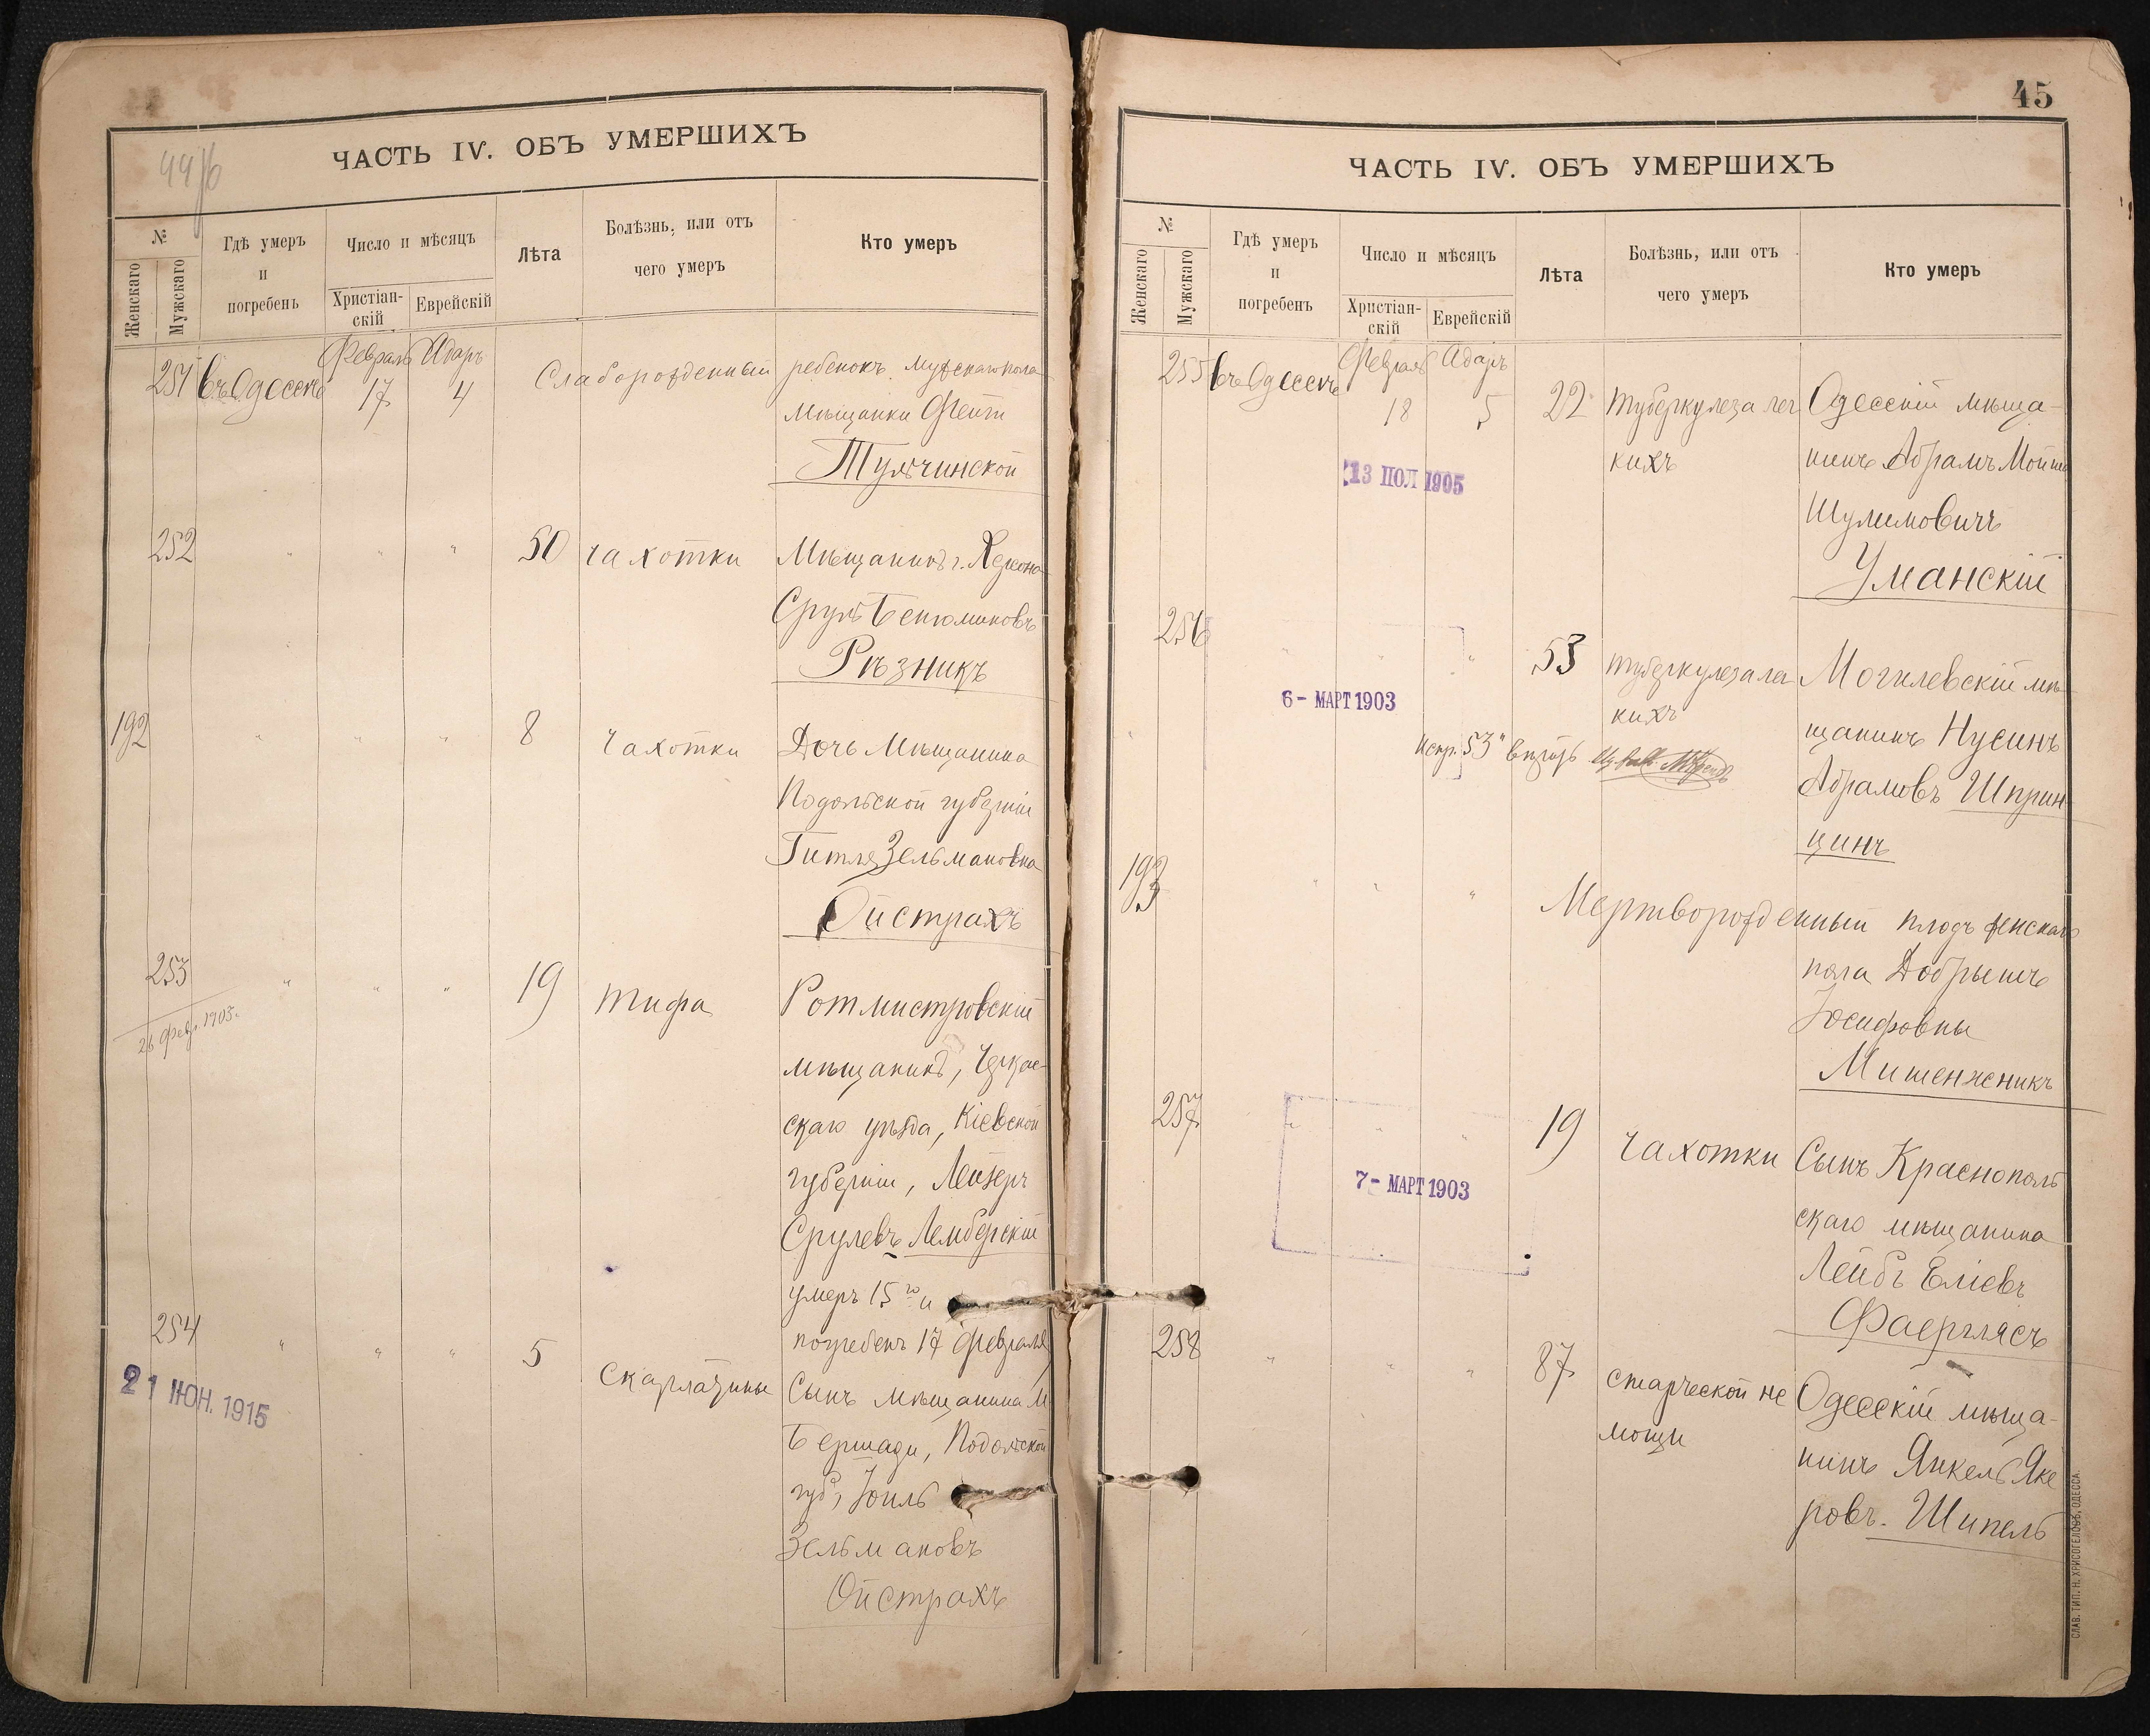 ЧАСТЬ IV. ОБЪ УМЕРШИХЪ
№
Женскаго
Мужскаго
Гдѣ умеръ
и
погребенъ
Число и мѣсяцъ
Христіан-
скій
Еврейскій
Лѣта
Болѣзнь, или отъ
чего умеръ
Кто умеръ
251 въ Одессѣ Февраль 17 Адаръ 4 Слаборожденный ребенокъ мужскаго пола
мѣщанки Фейги
Тульчинской
252 " " " 50 чахотки Мѣщанинъ г. Херсона
Сруль Бенюминовъ
Рѣзникъ
192 " " " 8 чахотки Дочь мѣщанина
Подольской губерніи
Гитля Зельмановна
Ойстрахъ
253 " " " 19 тифа Ротмистровскій
26 февр. 1903.
мѣщанинъ, Черкас-
скаго уѣзда, Кіевской
губерніи, Лейзеръ
Срулевъ Лембергскій
умеръ 15го и
погребенъ 17 февраля
254 " " " 5 скарлатины Сынъ мѣщанина м
21 ІЮН. 1915
Бершади, Подольской
губ, Іоиль
Зельмановъ
Ойстрахъ
45
ЧАСТЬ IV. ОБЪ УМЕРШИХЪ
№
Женскаго
Мужскаго
Гдѣ умеръ
и
погребенъ
Число и мѣсяцъ
Христіан-
скій
Еврейскій
Лѣта
Болѣзнь, или отъ
чего умеръ
Кто умеръ
255 въ Одессѣ Февраль 18 Адаръ 5 22 туберкулеза лег Одесскій мѣща-
кихъ нинъ Абрамъ Мойше
13 ІЮЛ 1905
Шулимовичъ
Уманскій
256 " " " 53 туберкулеза ла Могилевскій мѣ-
6 - МАРТ 1903
кихъ
щанинъ Нусинъ
испр. "53"
Абрамовъ Шприн-
цинъ
193 " " " Мертворожденный плодъ женскаго
пола Добрышъ
Іосифовны
Мишенженикъ
257 " " " 19 чахотки Сынъ Краснополь
7 - МАРТ 1903
скаго мѣщанина
Лейбъ Еліевъ
Фаерглясъ
258 " " " 87 старческой не Одесскій мѣща-
мощи
нинъ Янкель Яке
ровъ. Шипель
СЛАВ. ТИП. Н. ХРИСОГЕЛОСЪ, ОДЕССА.